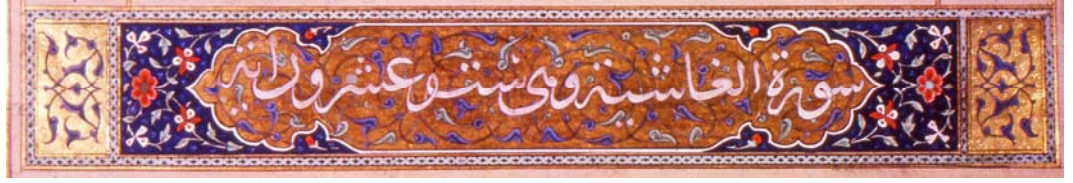 سورة الغاشية وهي ست وعشرون اية